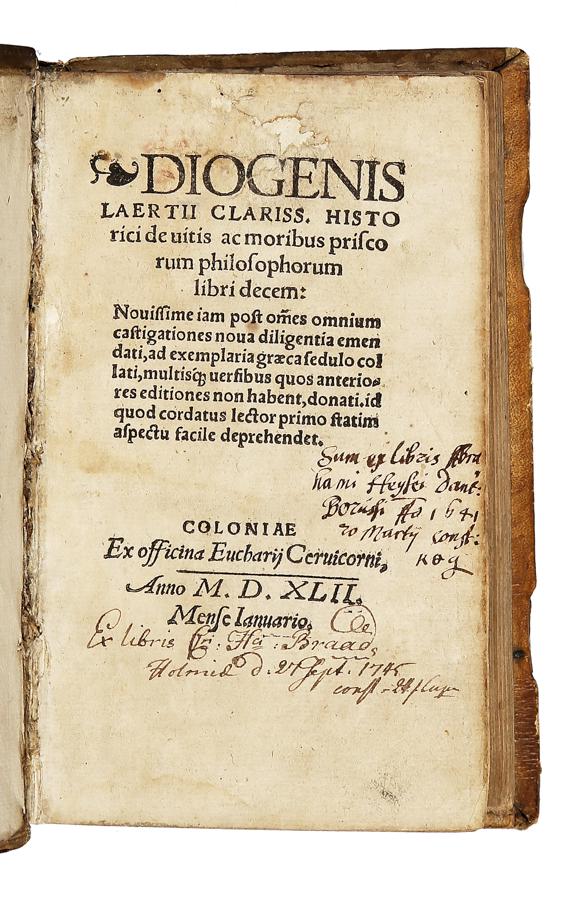 DIOGENIS
LAERTII CLARISS. HISTO
rici de uitis ac moribus priſco
rum philoſophorum
libri decem:
Nouiſſime iam poſt om̃es omnium
caſtigationes noua diligentia emen
dati, ad exemplaria græca ſedulo col
lati, multisq; uerſibus quos anterio-
res editiones non habent, donati. id
quod cordatus lector primo ſtatim
aſpectu facile deprehendet.
Sum ex libris Abra
hami Heyſei Dant:
Boruſſi Ao 1641
20 Martij conſt:
COLONIAE
Ex officina Eucharij Ceruicorni,
Anno M. D. XLII.
Menſe Ianuario.
Ex libris Braad,
Holmiæ d. 27 Sept. 1745
conſt